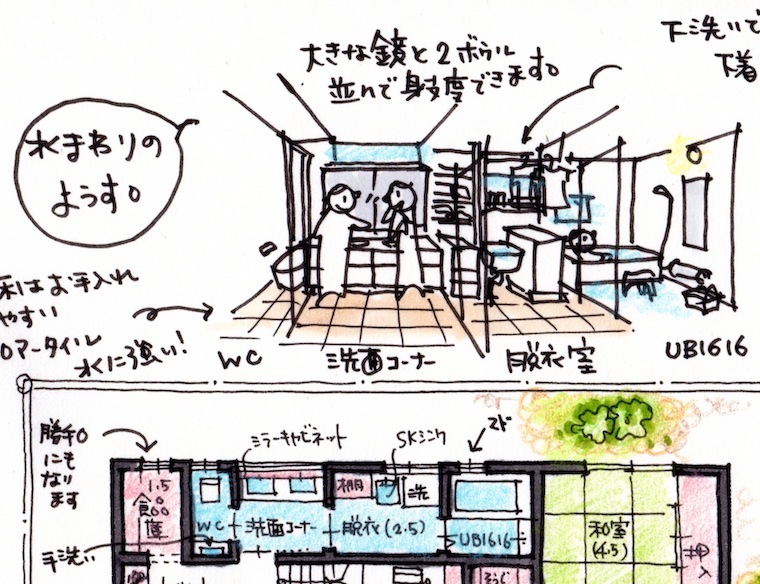 大きな鏡と2ボウル
並んで身支度できます。
下洗いで
下着
水まわりの
ようす。
床はお手入れ
やすい
ロアータイル
水に強い!
WC
洗面コーナー
脱衣室
UB1616
勝手口
にも
なり
ます
ミラーキャビネット
SKシンク
マド
1.5
食品庫
WC
洗面コーナー
棚
洗
脱衣(2.5)
UB1616
和室
(4.5)
押入
手洗い